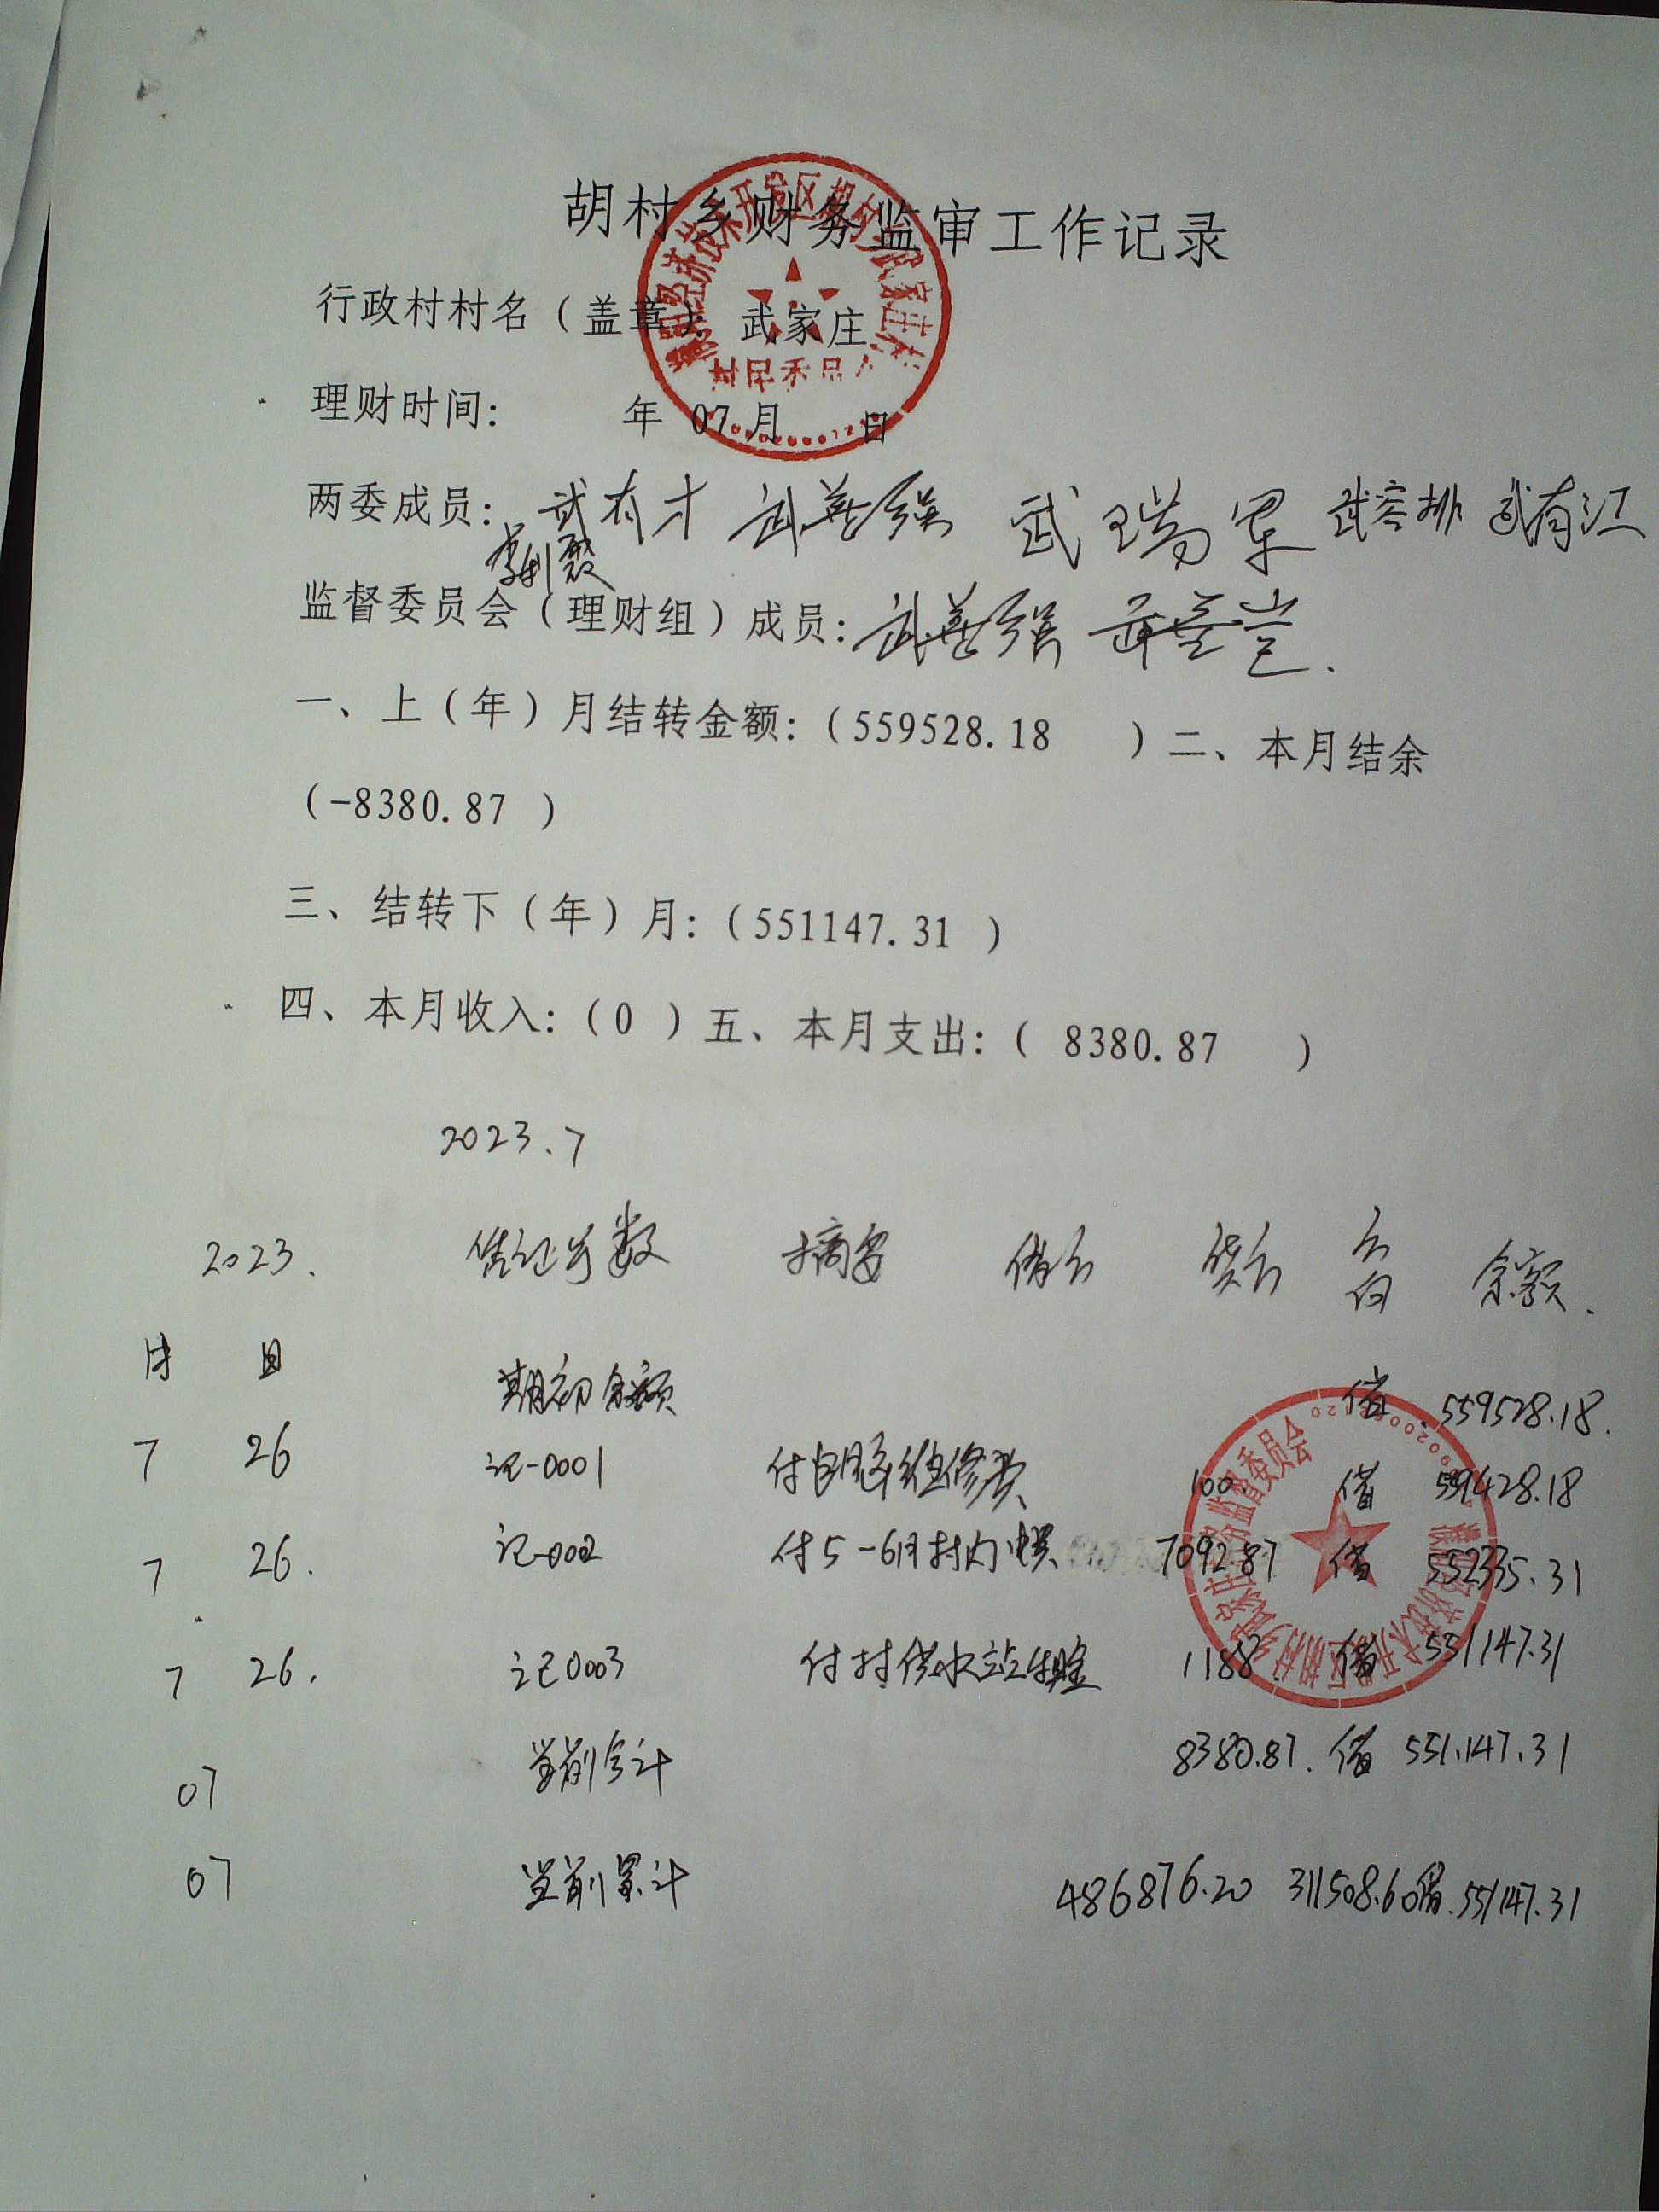 胡村乡财务监审工作记录
行政村村名（盖章）： 武家庄
理财时间： 年 07 月 日
两委成员： 武有才 武善强 武瑞军 武有江
监督委员会（理财组）成员： 武善强
一、上（年）月结转金额：（559528.18 ）二、本月结余
（-8380.87 ）
三、结转下（年）月：（551147.31 ）
四、本月收入：（0 ）五、本月支出：（ 8380.87 ）
2023.7
2023. 凭证号数 摘要 借方 贷方 方向 余额.
月 日 期初余额 借 559528.18.
7 26 记-0001 付 维修费 100. 借 559428.18
7 26. 记-002 付5-6月村内电费 7092.87 借 552335.31
7 26. 记0003 付村供水站租金 1188. 借 551147.31
07 当前合计 8380.87. 借 551.147.31
07 当前累计 486876.20 311508.60 借.551147.31